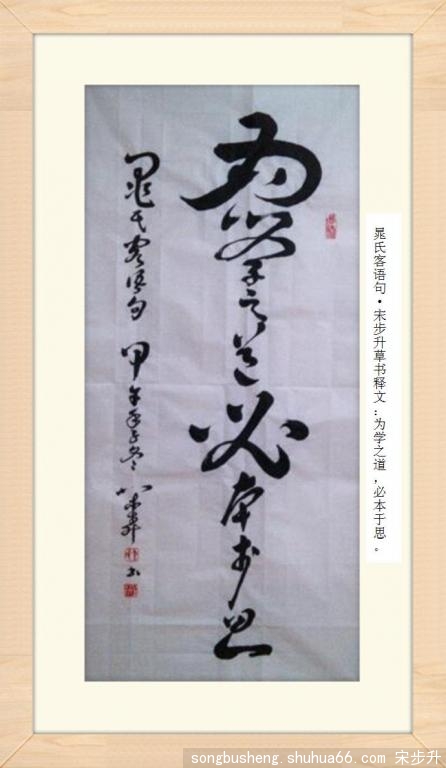 晁氏客语句·宋步升草书释文:为学之道,必本于思。
為學之道必本於思
晁氏客语句 甲午年冬 宋步升 书
songbusheng.shuhua66.com 宋步升